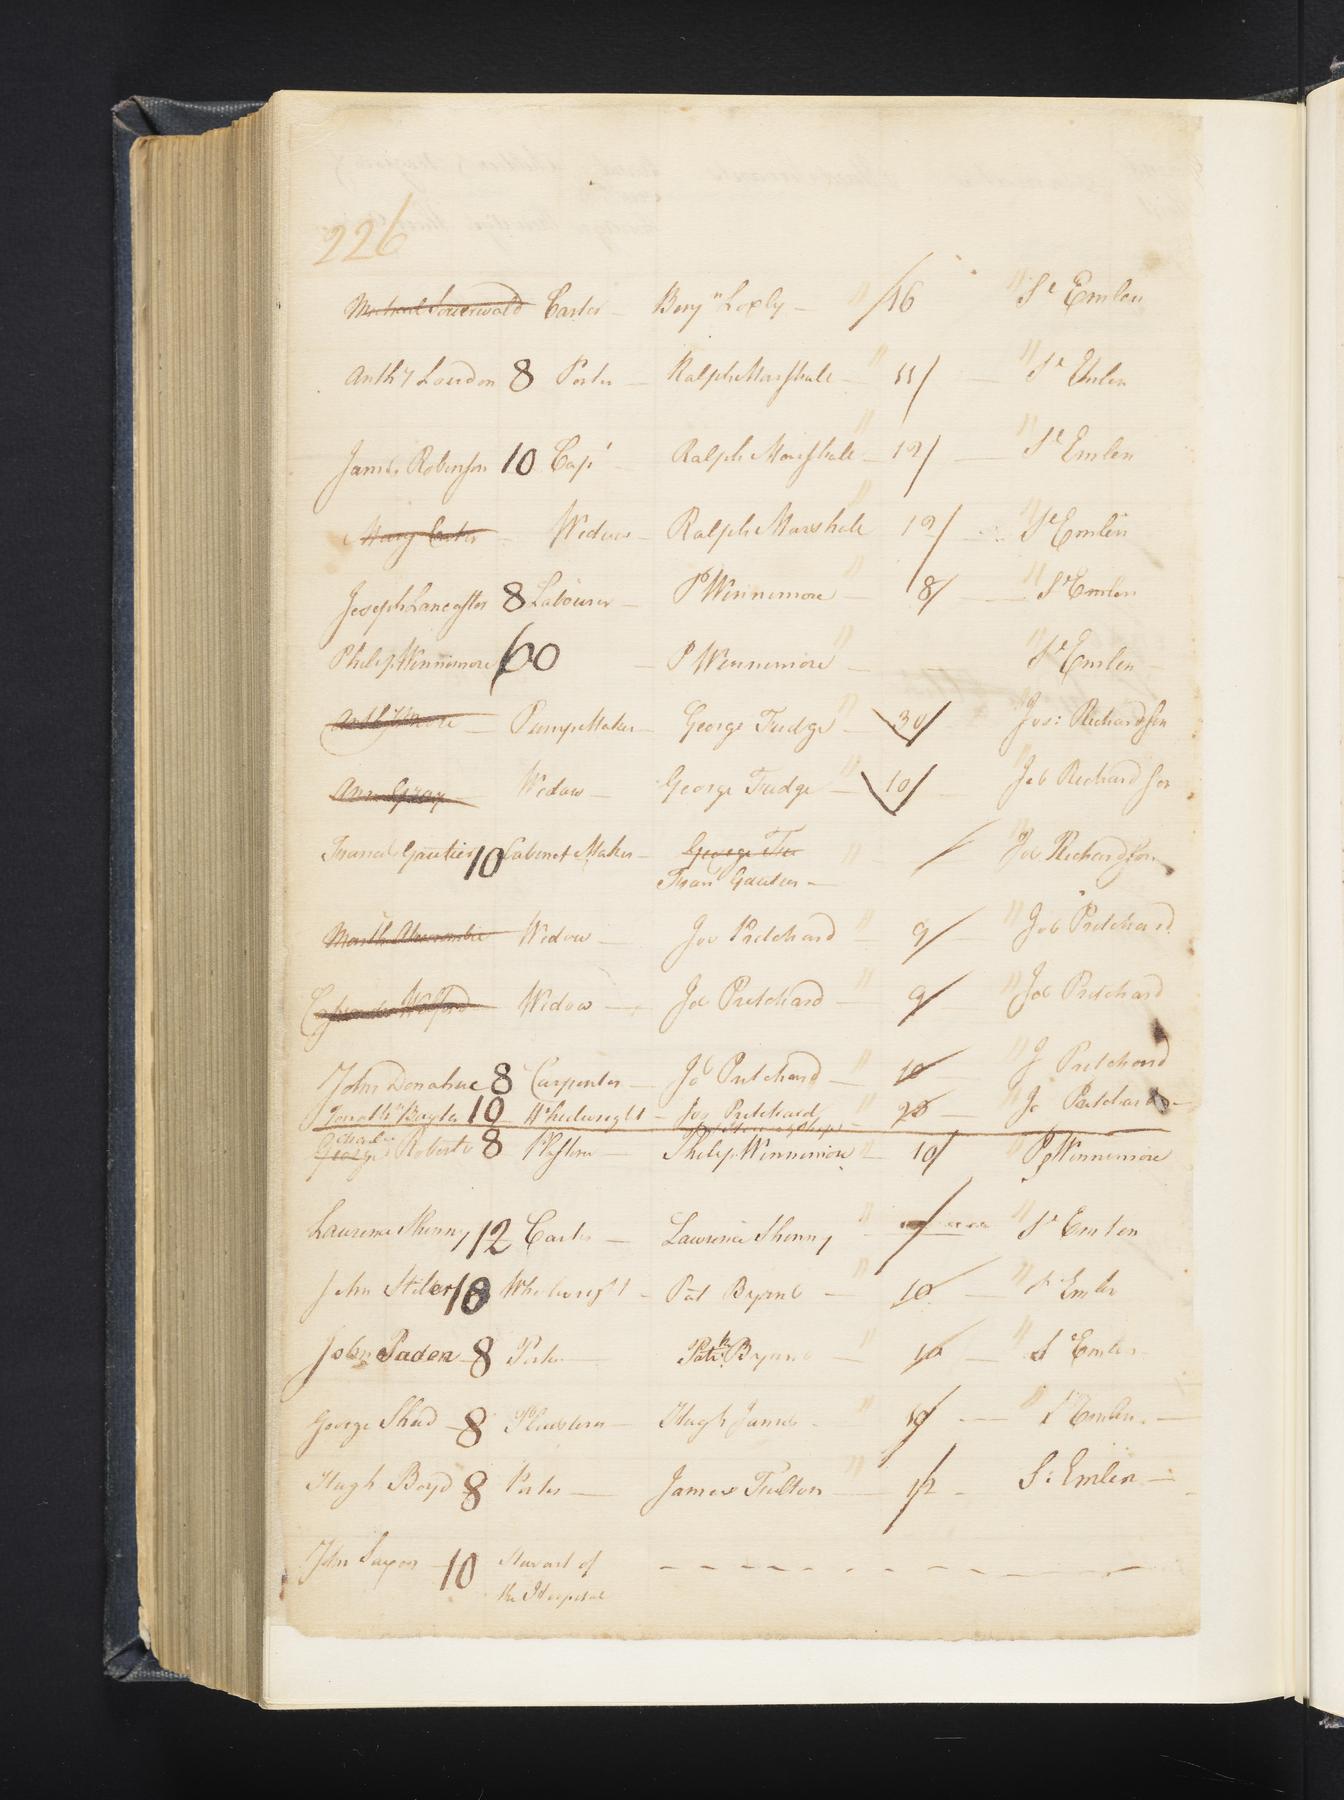 226
Carter — Benjn Loxly — " /16 " Sl Emlen
Anthy Loudon 8 Porter — Ralph Marshall — " 11/ — " Sl Emlen
James Robinson 10 Capt — Ralph Marshall — " 12/ — " Sl Emlen
Mary Carter — Widow — Ralph Marshall " 12/ — " Sl Emlen
Joseph Lancaster 8 Labourer — P Winnemore " — 8/ — " Sl Emlen
Philip Winnemore 60 — P Winnemore " — " Sl Emlen —
Pump Maker — George Fudge " — 30/ " Jos: Richardson
Ann Gray — Widow — George Fudge " — 10/ — " Job Richardson
Francis Gautier 10 Cabinet Maker — George Fu " — / " Job Richardson
Fran Gautier —
Widow — Job Pritchard " — 9/ — " Job Pritchard
Widow — Job Pritchard " — 9/ " Job Pritchard
John Donahue 8 Carpenter — Jo Pritchard — " 10 " J Pritchard
10 Wheelwright — Jos Pritchard " — 20 — " Jo Pritchard —
Charles
George Roberts 8 Plasterer — Philip Winnemore — " 10/ " P Winnemore
Lawrence Shinny 12 Carter — Lawrence Shinny " — " Sl Emlen
John Stiler 10 Wheelwright — Pat Byrne — " 10 — " Sl Emlen
John Paden 8 Porter — Patk Byrne — " 10 — " Sl Emlen
George Shed — 8 Plasterer — Hugh James — " 10 — " Sl Emlen —
Hugh Boyd 8 Porter — James Fulton " — 12 — S: Emlen —
10 Steward of
the Hospital